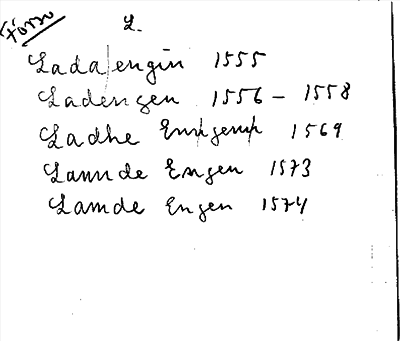 Förso
L.
Lada/engin 1555
Ladengen 1556 - 1558
Ladhe Engenh 1569
Lannde Engen 1573
Lamde Engen 1574